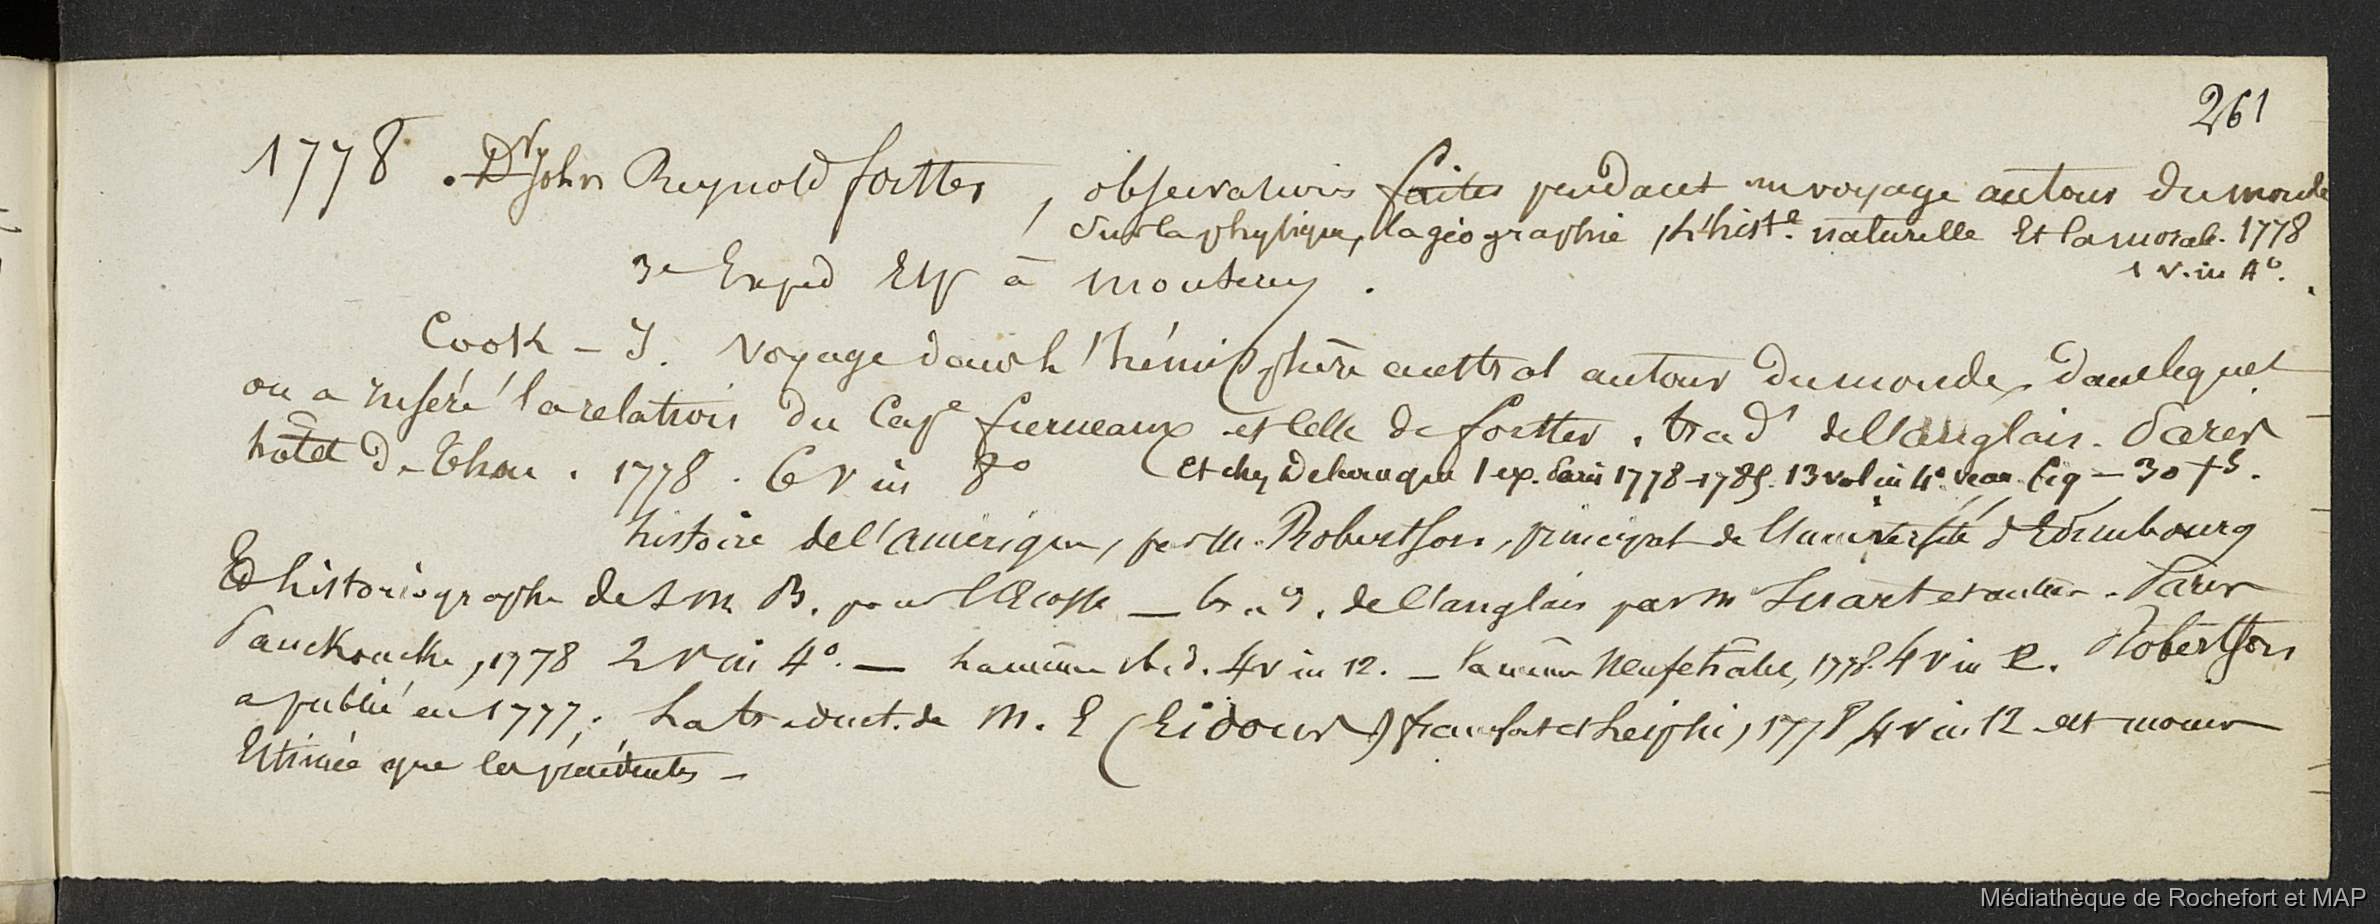 261
1778 . Dr John Reynold forster, observations faites pendant un voyage autour du monde
sur la physique, la géographie, l'histe. naturelle et la morale. 1778
1 v. in 4o.
3e Exped Esp à Monterey.
Cook - J. Voyage dans l'hémisphère austral autour du monde, dans lequel
on a inséré la relation du Cape furneaux et celle de forster. trad de l'anglais. Paris
hôtel de Thou. 1778. 6 v in 8o (et chez Delarroque 1 ex. Paris 1778-1785. 13 vol in 4o veau fig - 30 fs.
histoire de l'amérique, par M. Robertson, principal de l'université d'Edimbourg
Et historiographe de S M B. pour l'Ecosse - trad. de l'anglais par M Suart et autres. Paris
Panckoucke, 1778 2 v in 4o. - La même ibid. 4 v in 12. - La même Neufchâtel, 1778. 4 v in 12. Robertson
a publié en 1777; La traduct. de M. E (Eidous) francfort et Leipsic, 1778, 4 v in 12 est moins
Estimée que les précédentes -
Médiathèque de Rochefort et MAP